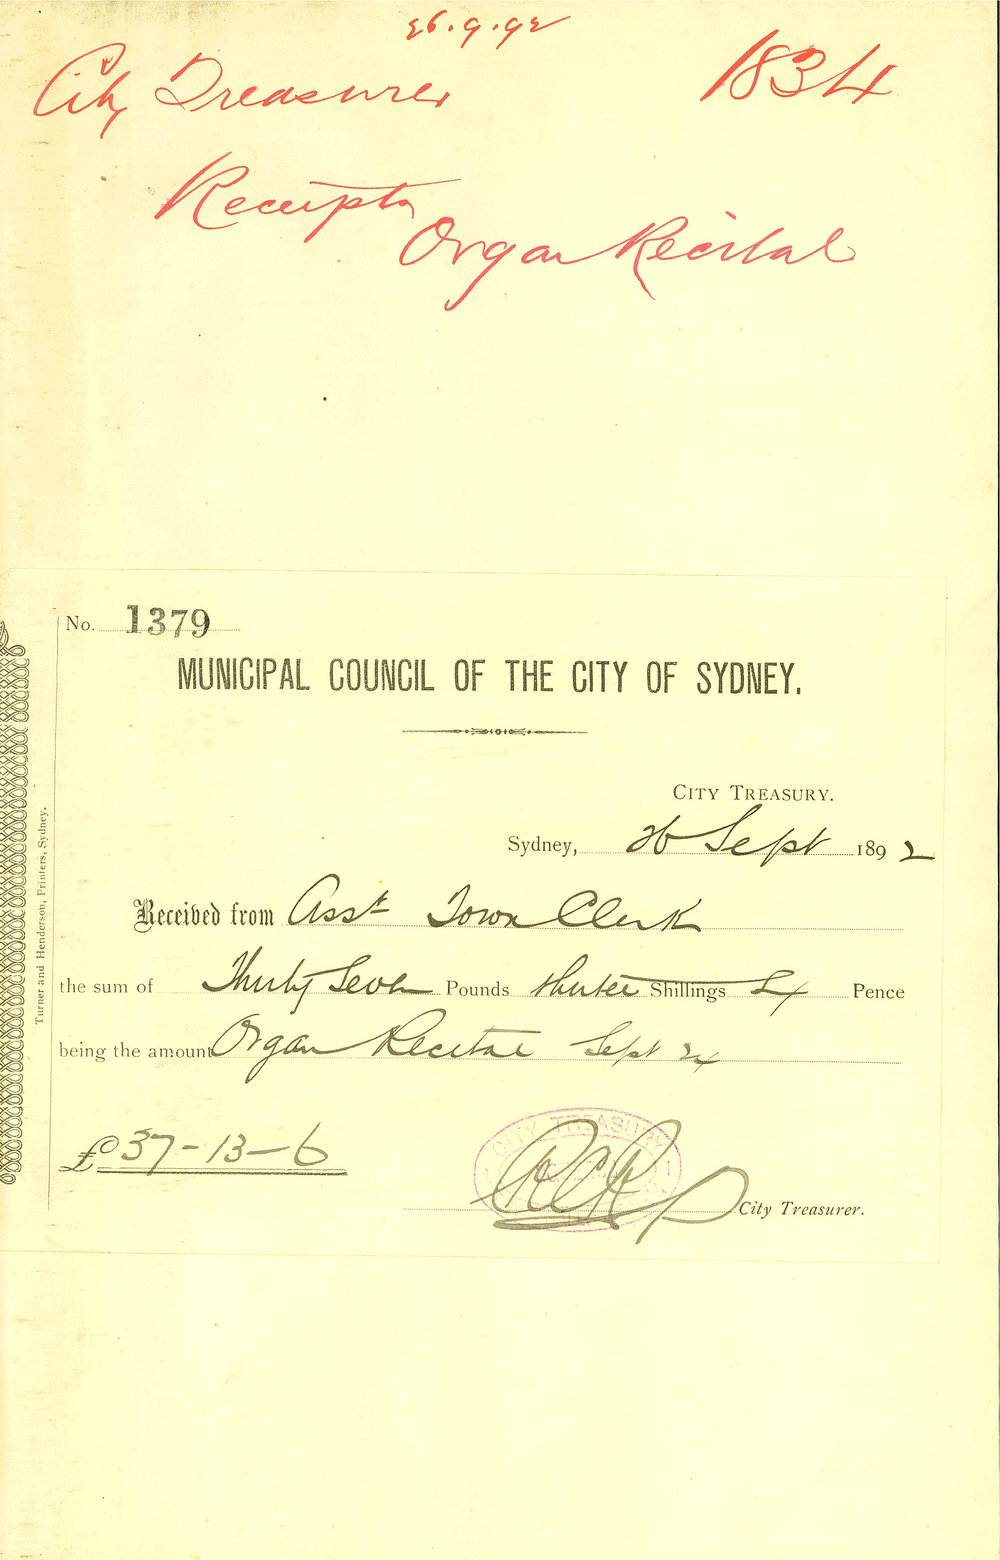 26.9.92
City Treasurer 1834
Receipt
Organ Recital
No. 1379
MUNICIPAL COUNCIL OF THE CITY OF SYDNEY.
CITY TREASURY.
Sydney, 26 Sept 1892
Received from Asst Town Clerk
the sum of Thirty Seven Pounds thirteen Shillings Pence
being the amount Organ Recital Sept 24
£37-13-6
CITY TREASURY
City Treasurer.
Turner and Henderson, Printers, Sydney.